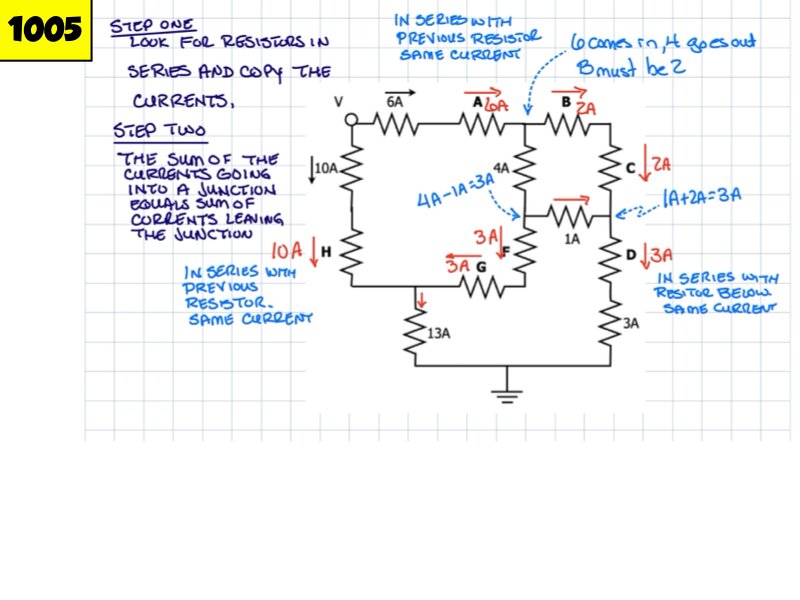 1005
STEP ONE
LOOK FOR RESISTORS IN
SERIES AND COPY THE
CURRENTS.
STEP TWO
THE SUM OF THE
CURRENTS GOING
INTO A JUNCTION
EQUALS SUM OF
CURRENTS LEAVING
THE JUNCTION
IN SERIES WITH
PREVIOUS RESISTOR
SAME CURRENT
6 comes in, 4 goes out
B must be 2
V
6A
A 6A
B
2A
10A
4A
C 2A
4A-1A=3A
1A+2A=3A
1A
10A H
3A
F
3A G
D 3A
IN SERIES WITH
PREVIOUS
RESISTOR.
SAME CURRENT
IN SERIES WITH
RESITOR BELOW
SAME CURRENT
13A
3A